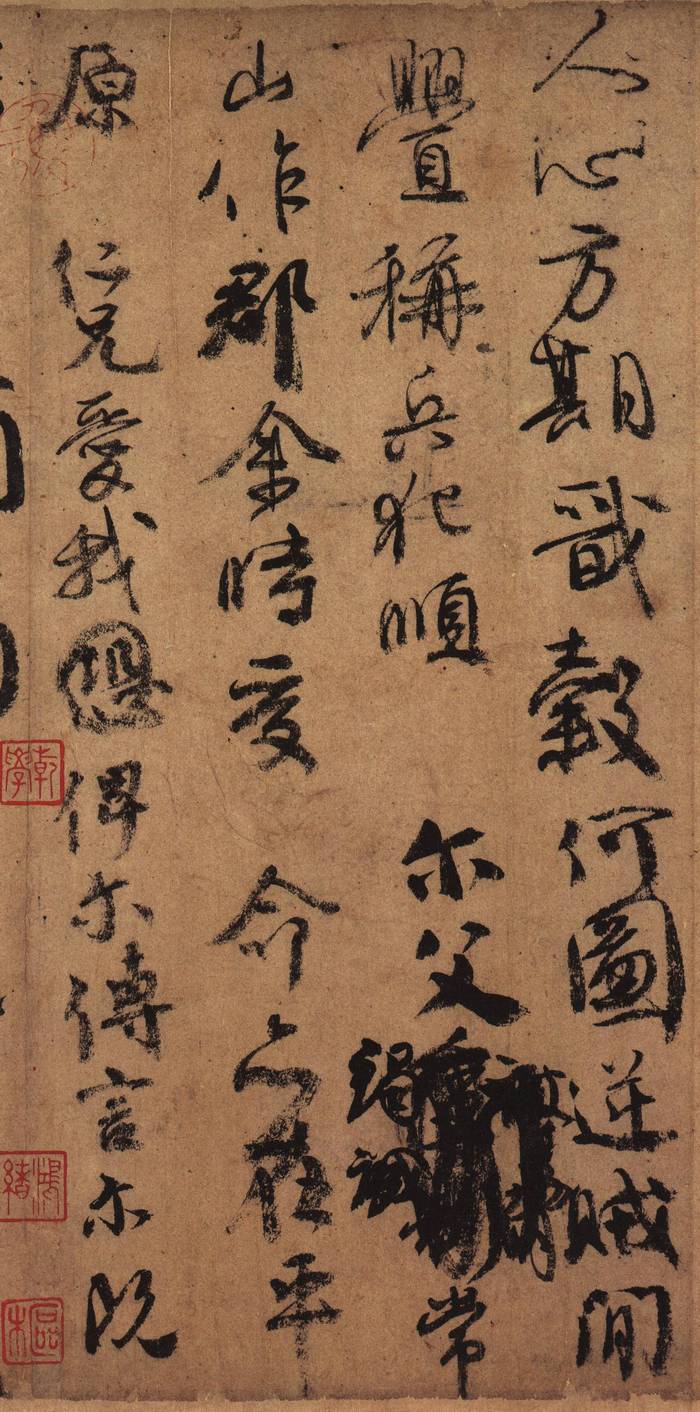 人心方期戩穀何圖逆賊間
釁稱兵犯順尔父竭誠常
山作郡余時受命亦在平
原仁兄愛我恐俾尔傳言尔既
乾學
樞